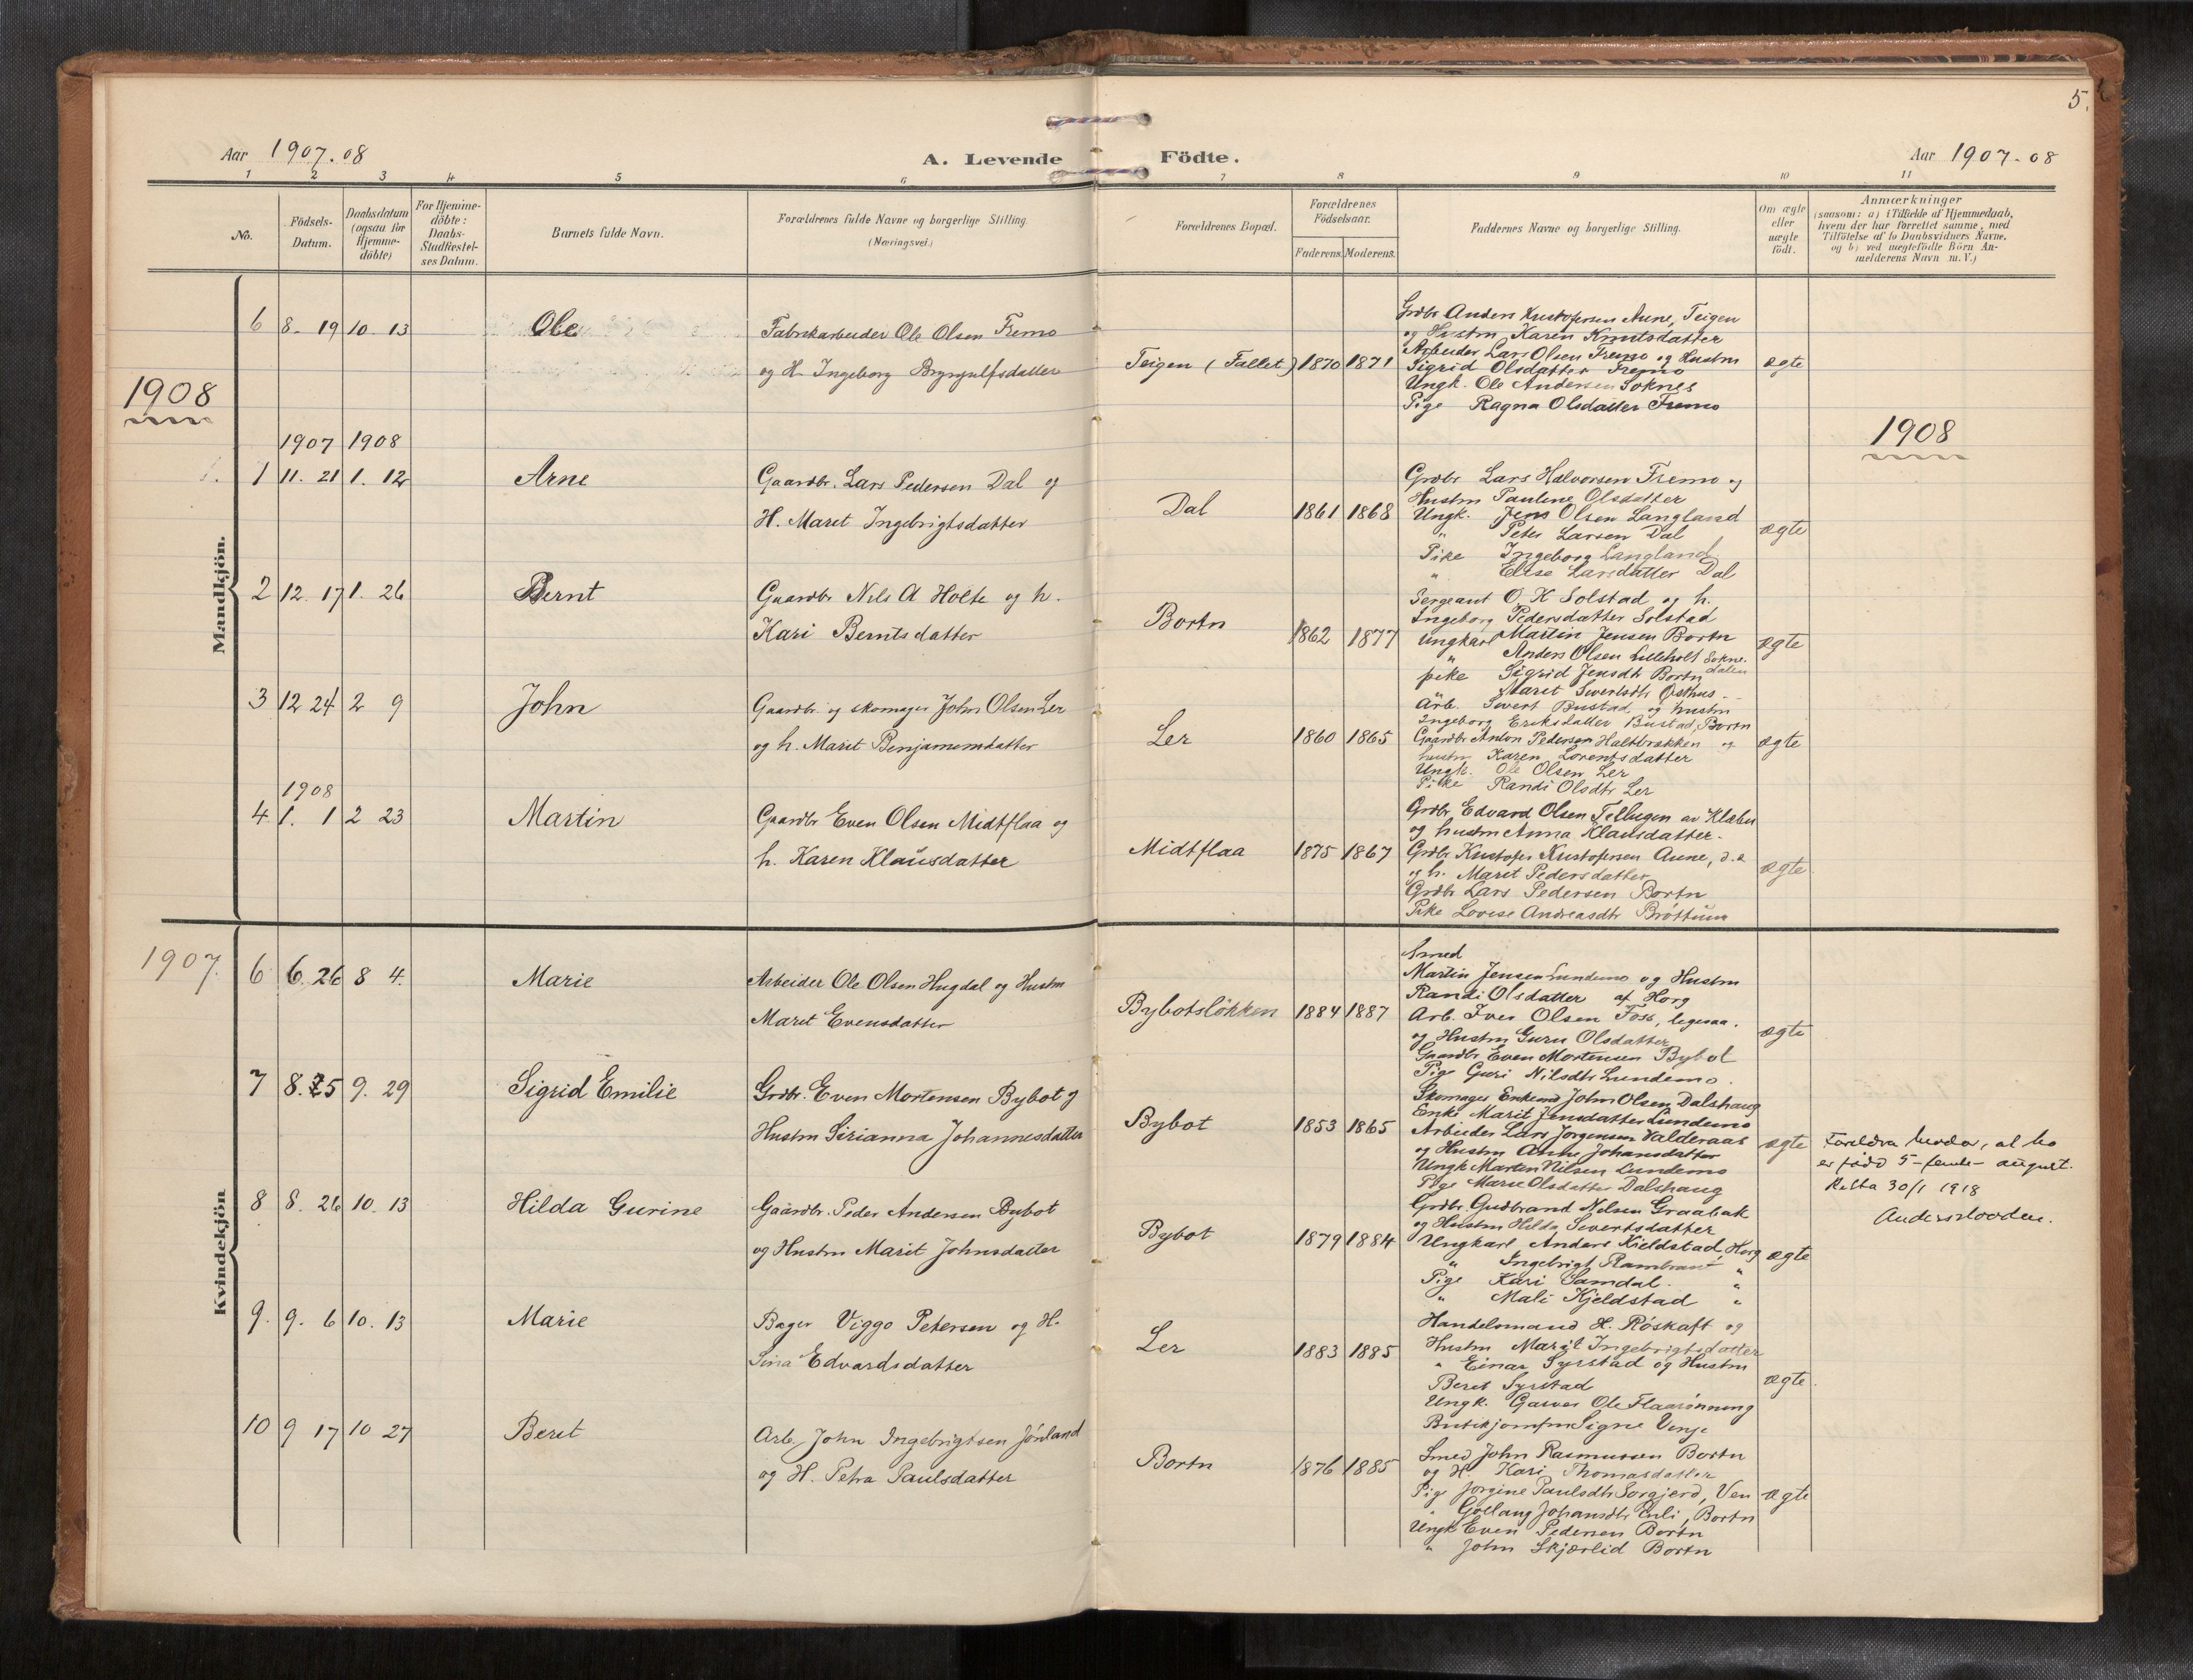 5.
Aar 1907.08
A. Levende Födte.
Aar 1907-08
1 2 3 4 5 6 7 8 9 10 11
No.
Födsels-Datum.
Daabsdatum (ogsaa for Hjemme-döbte)
For Hjemme-döbte: Daabs-Stadfæstel-ses Datum.
Barnets fulde Navn.
Forældrenes fulde Navne og borgerlige Stilling. (Næringsvei.)
Forældrenes Bopæl.
Forældrenes Födselsaar.
Faderens. Moderens.
Faddernes Navne og borgerlige Stilling.
Om ægte eller uægte födt.
Anmærkninger
(saasom: a) i Tilfælde af Hjemmedaab,
hvem der har forrettet samme, med
Tilföielse af to Daabsvidners Navne,
og b) ved uægtefödte Börn An-
melderens Navn m.V.)
Mandkjön.
6 8. 19 10. 13 Ole
Fabrikarbeider Ole Olsen Fremo
og H. Ingeborg Brynjulfsdatter
Teigen (Fallet) 1870 1871
Grdbr. Anders Kristofersen Aune, Teigen
og Hustru Karen Knutsdatter
Arbeider Lars Olsen Fremo og Hustru
Sigrid Olsdatter Fremo
Ungk. Ole Andersen Soknes
Pige Ragna Olsdatter Fremo
ægte
1908
1908
1907 1908
1 11. 21 1. 12 Arne
Gaardbr. Lars Pedersen Dal og
H. Maret Ingebrigtsdatter
Dal 1861 1868
Grdbr Lars Halvorsen Fremo og
Hustru Pauline Olsdatter
Ungk. Jens Olsen Langland
" Peter Larsen Dal
Pike Ingeborg Langland
" Elise Larsdatter Dal
ægte
2 12. 17 1. 26 Bernt
Gaardbr Nils A Holte og h.
Kari Berntsdatter
Bortn 1862 1877
Sergeant O. K Solstad og h.
Ingeborg Pedersdatter Solstad
Ungkarl Martin Jensen Bortn
" Anders Olsen Lilleholt Sokne-
dalen
pike Sigrid Jensdtr Bortn
" Maret Sivertsdtr Øshus
Arb. Sivert Bustad og hustru
Ingeborg Eriksdatter Bustad, Bortn
ægte
3 12 24 2 9 John
Gaardbr. og skomager John Olsen Ler
og h. Marit Benjaminsdatter
Ler 1860 1865
Gaardbr Anton Pedersen Haltbrækken og
hustru Karen Lorentsdatter
Ungk. Ole Olsen Ler
Pike Randi Olsdtr Ler
ægte
1908
4 1. 1 2 23 Martin
Gaardbr Even Olsen Midtflaa og
h. Karen Klausdatter
Midtflaa 1875 1867
Grdbr. Edvard Olsen Tellugen av Klæbu
og hustru Anna Klausdatter.
Grdbr Kristofer Kristofersen Aune,
og h. Marit Pedersdatter
Grdbr Lars Pedersen Bortn
Pike Lovise Andreasdtr Bröttum
ægte
1907.
Kvindekjön
6 6. 26 8 4. Marie
Arbeider Ole Olsen Hugdal og Hustru
Maret Evensdatter
Bybotslökken 1884 1887
Smed
Martin Jensen Lundemo og Hustru
Randi Olsdatter af Horg
Arb. Iver Olsen Foss, ligesaa.
og Hustru Guru Olsdatter
Gaardbr Even Mortensen Bybot
Pige Guri Nilsdtr Lundemo.
ægte
7 8. 25 9. 29 Sigrid Emilie
Grdbr. Even Mortensen Bybot og
Hustru Sirianna Johannesdatter
Bybot 1853 1865
Skomager Enkem. John Olsen Dalshaug
Enke Marit Jensdatter Lundemo
Arbeider Lars Jørgensen Valderaas
og Hustru Anne Johansdatter
Ungk Martin Nilsen Lundemo
Pige Marie Olsdatter Dalshaug
ægte
Foreldra hevdar, at ho
er född 5-femte- august.
Retta 30/1 1918
8 8. 26 10. 13 Hilda Gurine
Gaardbr. Peder Andersen Bybot
og Hustru Marit Johnsdatter
Bybot 1879 1884
Grdbr. Gudbrand Nilsen Graabak
og Hustru Hilda Sivertsdatter
Ungkarl Anders Kjeldstad, Horg
" Ingebrigt "
Pige Kari Samdal. "
" Mali Kjeldstad "
ægte
9. 9. 6 10. 13 Marie
Bager Viggo Petersen og H.
Sina Edvardsdatter
Ler 1883 1885
Handelsmand H. Röskaft og
Hustru Marit Ingebrigtsdatter
" Einar Syrstad og Hustru
Beret Syrstad
Ungk. Garver Ole Flaarönning
Butikjomfru Signe Venje
ægte
10 9 17 10 27 Beret
Arb. John Ingebrigtsen Jönland
og H. Petra Paulsdatter
Bortn 1876 1885
Smed John Rasmussen Bortn
og H. Kari Thomasdatter
Pige Jorgine Paulsdtr Sorgjerd, Ven
" Gollaug Johansdtr Enli, Bortn
Ungk Even Pedersen Bortn
" John Skjærlid Bortn
ægte